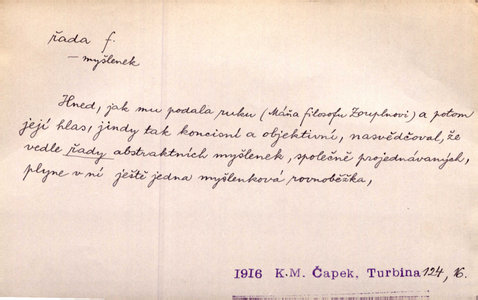 řada f.
— myšlenek
Hned, jak mu podala ruku (Máňa filosofu Zouplnovi) a potom
její hlas, jindy tak koncisní a objektivní, nasvědčoval, že
vedle řady abstraktních myšlenek, společně projednávaných,
plyne v ní ještě jedna myšlenková rovnoběžka,
1916 K.M. Čapek, Turbina 124, 16.